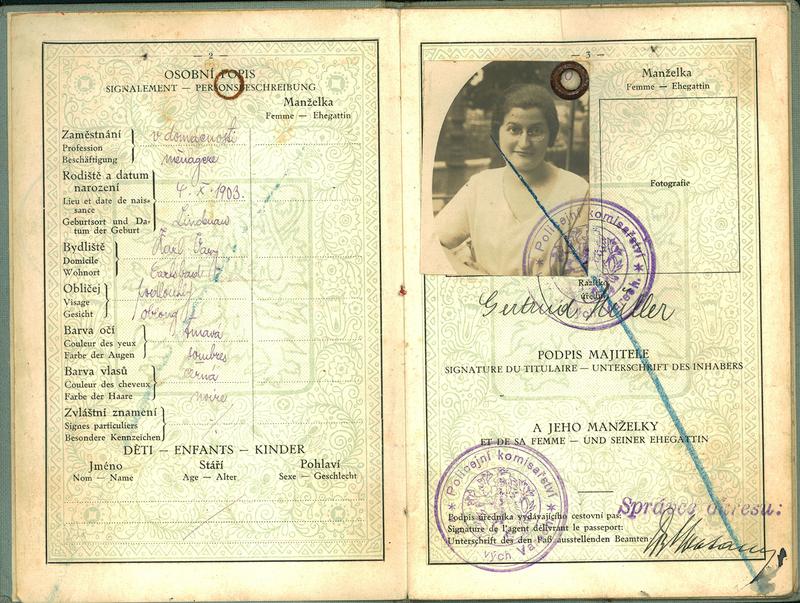 — 2 —
OSOBNÍ POPIS
SIGNALEMENT — PERSONSBESCHREIBUNG
Manželka
Femme — Ehegattin
Zaměstnání
Profession
Beschäftigung
v domácnosti
ménagère
Rodiště a datum
narození
Lieu et date de nais-
sance
Geburtsort und Da-
tum der Geburt
4. X. 1903.
Lindenau
Bydliště
Domicile
Wohnort
Karl. Vary
Carlsbad
Obličej
Visage
Gesicht
oblong
Barva očí
Couleur des yeux
Farbe der Augen
tmavá
sombres
Barva vlasů
Couleur des cheveux
Farbe der Haare
černá
noire
Zvláštní znamení
Signes particuliers
Besondere Kennzeichen
DĚTI — ENFANTS — KINDER
Jméno
Nom — Name
Stáří
Age — Alter
Pohlaví
Sexe — Geschlecht
— 3 —
Manželka
Femme — Ehegattin
Fotografie
Policejní komisařství
Razítko
úřední
Gertrud Haller
PODPIS MAJITELE
SIGNATURE DU TITULAIRE — UNTERSCHRIFT DES INHABERS
A JEHO MANŽELKY
ET DE SA FEMME — UND SEINER EHEGATTIN
Policejní komisařství
Správce okresu:
Podpis úředníka vydávajícího cestovní pas:
Signature de l'agent délivrant le passeport:
Unterschrift des den Paß ausstellenden Beamten: